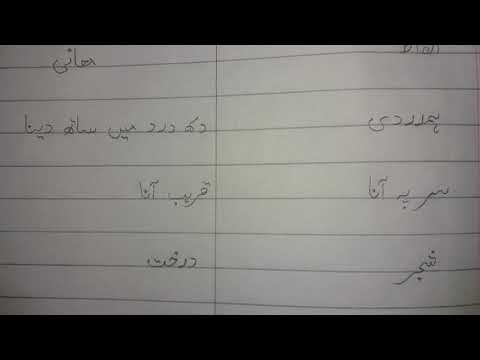 الفاظ معانی
ہمدردی دکھ درد میں ساتھ دینا
سر پہ آنا قریب آنا
شجر درخت